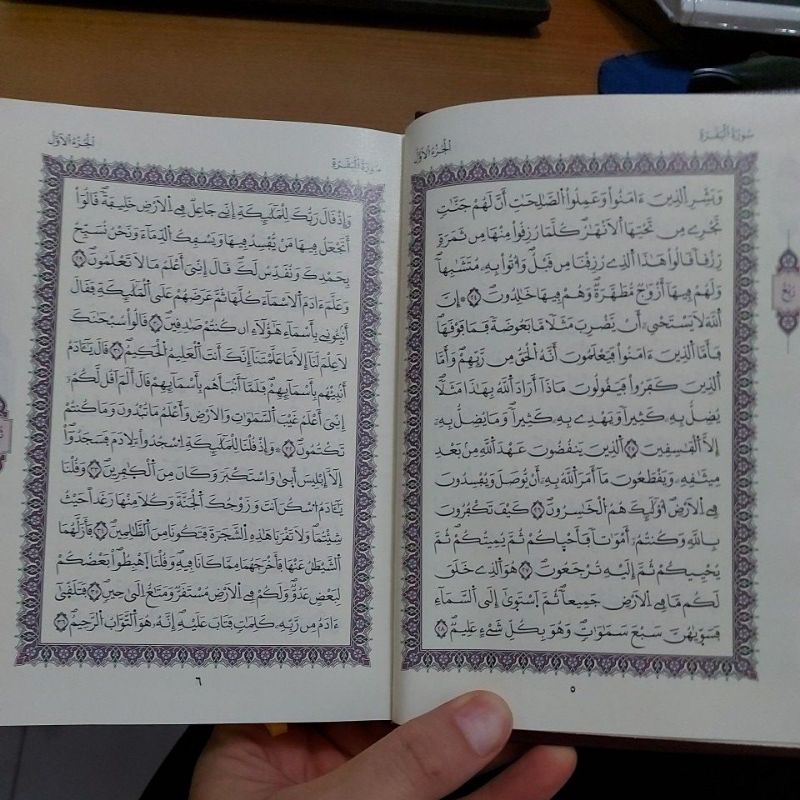 سورة البقرة
الجزء الأول
وبشر الذين ءامنوا وعملوا الصلحت أن لهم جنت
تجرے من تحتها الانهر كلما رزقوا منها من ثمرة
رزقا قالوا هذا الذے رزقنا من قبل وأتوا به متشبها
ولهم فيها أزوج مطهرة وهم فيها خلدون ٢٤ إن
الله لا يستحے أن يضرب مثلا ما بعوضة فما فوقها
فأما الذين ءامنوا فيعلمون أنه الحق من ربهم وأما
الذين كفروا فيقولون ماذا أراد الله بهذا مثلا
يضل به كثيرا ويهدے به كثيرا وما يضل به
إلا الفسقين ٢٥ الذين ينقضون عهد الله من بعد
ميثقه ويقطعون ما أمر الله به أن يوصل ويفسدون
فے الارض أولئك هم الخسرون ٢٦ كيف تكفرون
بالله وكنتم أموتا فأحيكم ثم يميتكم ثم
يحييكم ثم إليه ترجعون ٢٧ هو الذے خلق
لكم ما فے الارض جميعا ثم استوى إلى السماء
فسويهن سبع سموت وهو بكل شےء عليم ٢٨
٥
ربع
سورة البقرة
الجزء الأول
وإذ قال ربك للملئكة إنے جاعل فے الارض خليفة قالوا
أتجعل فيها من يفسد فيها ويسفك الدماء ونحن نسبح
بحمدك ونقدس لك قال إنے أعلم ما لا تعلمون ٢٩
وعلم ءادم الاسماء كلها ثم عرضهم على الملئكة فقال
أنبئونے بأسماء هؤلاء ان كنتم صدقين ٣٠ قالوا سبحنك
لا علم لنا إلا ما علمتنا إنك أنت العليم الحكيم ٣١ قال يئادم
أنبئهم بأسمائهم فلما أنبأهم بأسمائهم قال ألم اقل لكم
إنے أعلم غيب السموت والارض وأعلم ما تبدون وما كنتم
تكتمون ٣٢ وإذ قلنا للملئكة اسجدوا لادم فسجدوا
إلا إبليس أبى واستكبر وكان من الكفرين ٣٣ وقلنا
يئادم اسكن انت وزوجك الجنة وكلا منها رغدا حيث
شئتما ولا تقربا هذه الشجرة فتكونا من الظلمين ٣٤ فأزلهما
الشيطن عنها فأخرجهما مما كانا فيه وقلنا اهبطوا بعضكم
لبعض عدو ولكم فے الارض مستقر ومتع الى حين ٣٥ فتلقى
ءادم من ربه كلمت فتاب عليه إنه هو التواب الرحيم ٣٦
٦